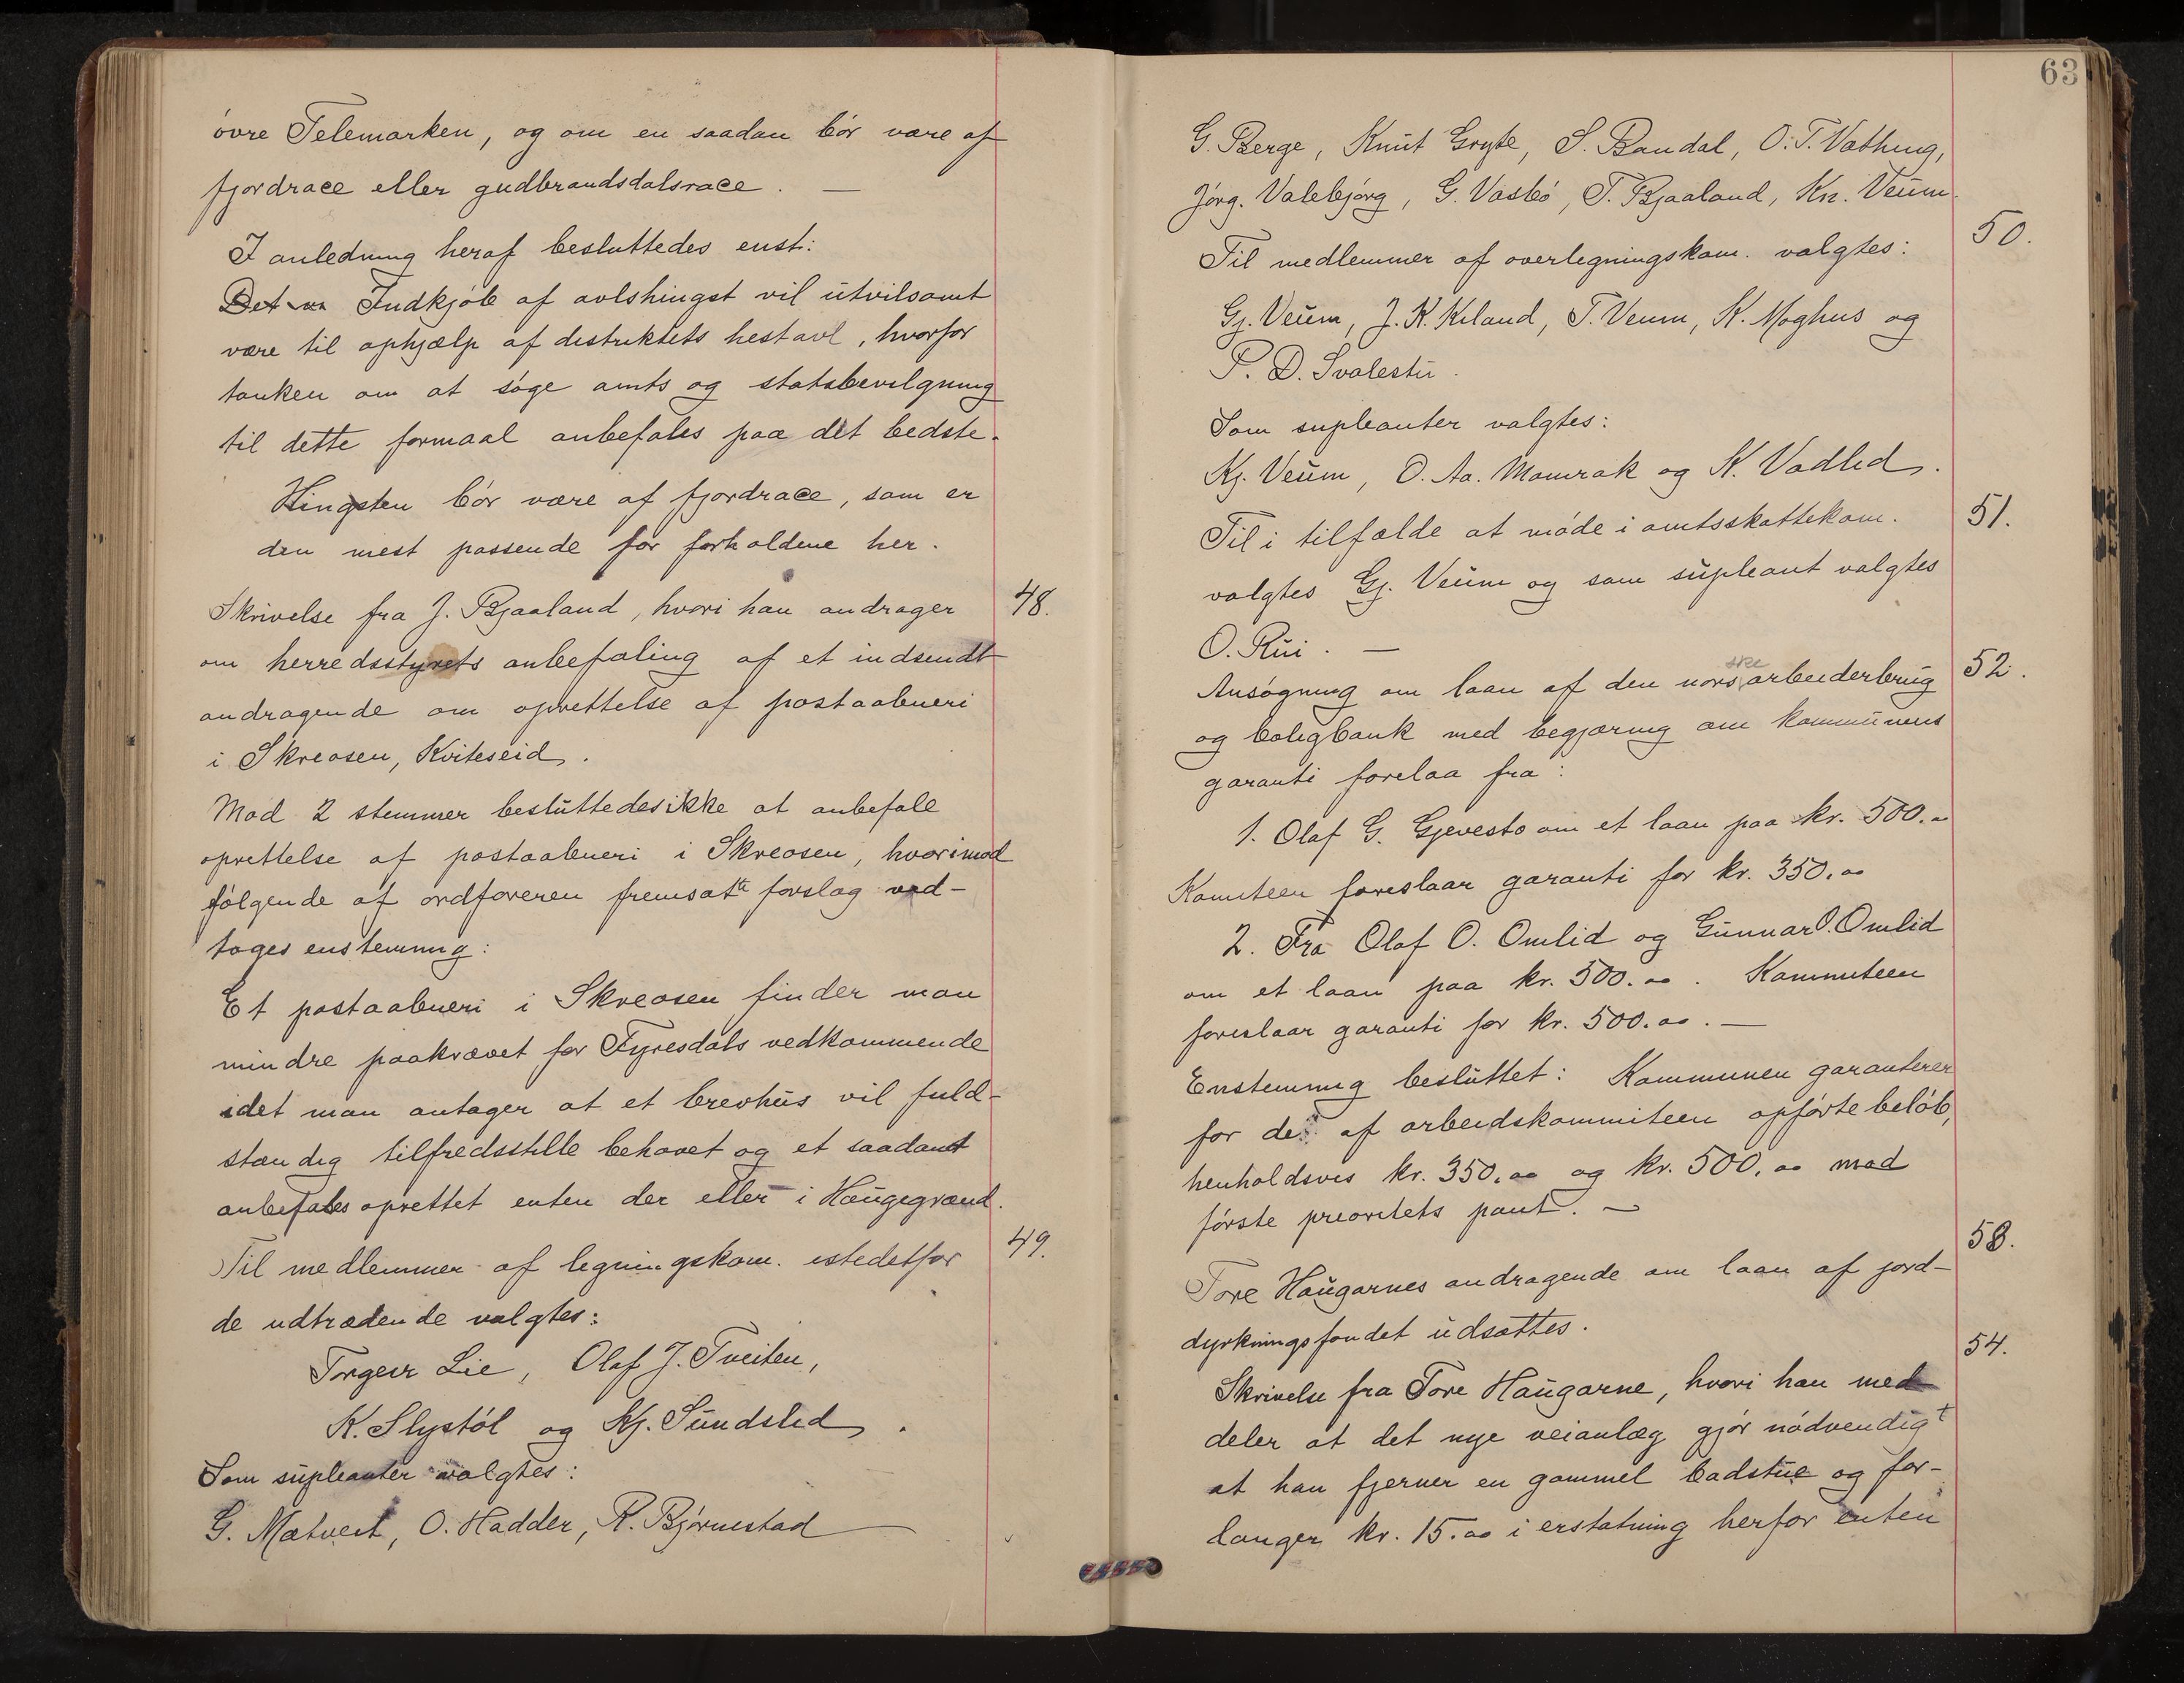 övre Telemarken, og om en saadan bör være af
fjordrace eller gudbrandsdalsrace. —
I anledning heraf besluttedes enst:
Det va Indkjöb af avlshingst vil utvilsomt
være til ophjælp af distriktets hestavl, hvorfor
tanken om at söge amts og statsbevilgning
til dette formaal anbefales paa det bedste.
Hingsten bör være af fjordrace, som er
den mest passende for forholdene her.
48.
Skrivelse fra J. Bjaaland, hvori han andrager
om herredsstyrets anbefaling af et indsendt
andragende om oprettelse af postaabneri
i Skreosen, Kviteseid.
Mod 2 stemmer besluttedes ikke at anbefale
oprettelse af postaabneri i Skreosen, hvorimod
fölgende af ordföreren fremsatte forslag ved-
toges enstemmig:
Et postaabneri i Skreosen finder man
mindre paakrævet for Fyresdals vedkommende
idet man antager at et brevhus vil fuld-
stændig tilfredsstille behovet og et saadant
anbefales oprettet enten der eller i Haugegrænd.
49.
Til medlemmer af legningskom. istedetfor
de udtrædende valgtes:
Torgeir Lie, Olaf J. Tveiten,
K. Slystöl og Kj. Sundslid.
Som supleanter valgtes:
G. Matveit, O. Hadder, R. Björnestad
63
G. Berge, Knut Gryte, S. Bandal, O. T. Vathing,
Jörg. Valebjörg, G. Vasbö, T. Bjaaland, Kn. Veum.
50.
Til medlemmer af overlegningskom. valgtes:
Gj. Veum, J. K. Kiland, T. Veum, K. Moghus og
P. D. Svalestu.
Som supleanter valgtes:
Kj. Veum, O. Aa. Momrak og K. Vadlid.
51.
Til i tilfælde at möde i amtsskattekom.
valgtes Gj. Veum og som supleant valgtes
O. Rui. —
52.
Ansögning om laan af den norske arbeiderbrug
og boligbank med begjæring om kommunens
garanti forelaa fra:
1. Olaf G. Gjevesto om et laan paa kr. 500.00
Komiteen foreslaar garanti for kr. 350.00
2. Fra Olaf O. Omlid og Gunnar O. Omlid
om et laan paa kr. 500.00. Kommiteen
foreslaar garanti for kr. 500.00. —
Enstemmig besluttet: Kommunen garanterer
for de af arbeidskommiteen opförte belöb,
henholdsvis kr. 350.00 og kr. 500.00 mod
förste prioritets pant. —
53.
Tore Haugarnes andragende om laan af jord-
dyrkningsfondet udsættes.
54.
Skrivelse fra Tore Haugarne, hvori han med
deler at det nye veianlæg gjör nödvendigt
at han fjerner en gammel badstue og for-
langer kr. 15.00 i erstatning herfor enten